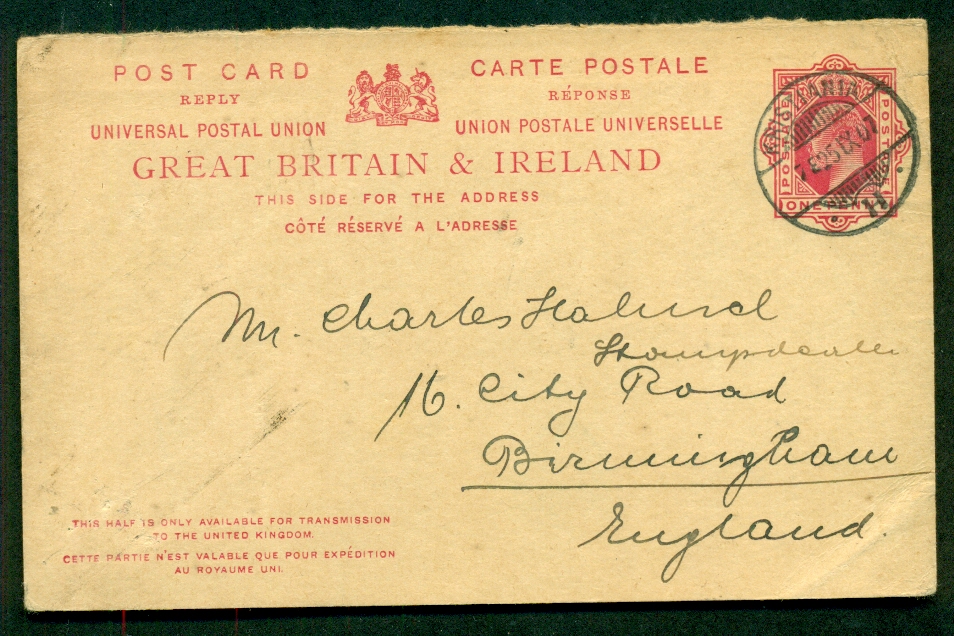 POST CARD
REPLY
UNIVERSAL POSTAL UNION
CARTE POSTALE
RÉPONSE
UNION POSTALE UNIVERSELLE
GREAT BRITAIN & IRELAND
THIS SIDE FOR THE ADDRESS
CÔTÉ RÉSERVÉ A L'ADRESSE
POSTAGE
POSTAGE
ONE PENNY
Mr. Charles
Stampdealer
16. City Road
Birmingham
England.
THIS HALF IS ONLY AVAILABLE FOR TRANSMISSION
TO THE UNITED KINGDOM.
CETTE PARTIE N'EST VALABLE QUE POUR EXPÉDITION
AU ROYAUME UNI.